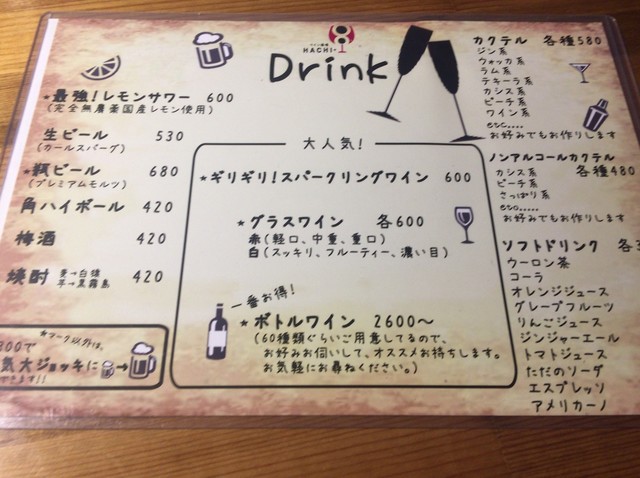 ワイン酒場
HACHI
Drink
★最強!レモンサワー 600
(完全無農薬国産レモン使用)
生ビール 530
(カールスバーグ)
★瓶ビール 680
(プレミアムモルツ)
角ハイボール 420
梅酒 420
焼酎 麦→白猿 420
芋→黒霧島
★マーク以外は、
300で
気大ジョッキに
できます!!
大人気!
★ギリギリ!スパークリングワイン 600
★グラスワイン 各600
赤(軽口、中重、重口)
白(スッキリ、フルーティー、濃い目)
一番お得!
★ボトルワイン 2600〜
(60種類ぐらいご用意してるので、
お好みお伺いして、オススメお持ちします。
お気軽にお尋ねください。)
カクテル 各種580
ジン系
ウォッカ系
ラム系
テキーラ系
カシス系
ピーチ系
ワイン系
esc.....
お好みでもお作りします
ノンアルコールカクテル
カシス系 各種480
ピーチ系
さっぱり系
esc.....
お好みでもお作りします
ソフトドリンク 各3
ウーロン茶
コーラ
オレンジジュース
グレープフルーツ
りんごジュース
ジンジャーエール
トマトジュース
ただのソーダ
エスプレッソ
アメリカーノ